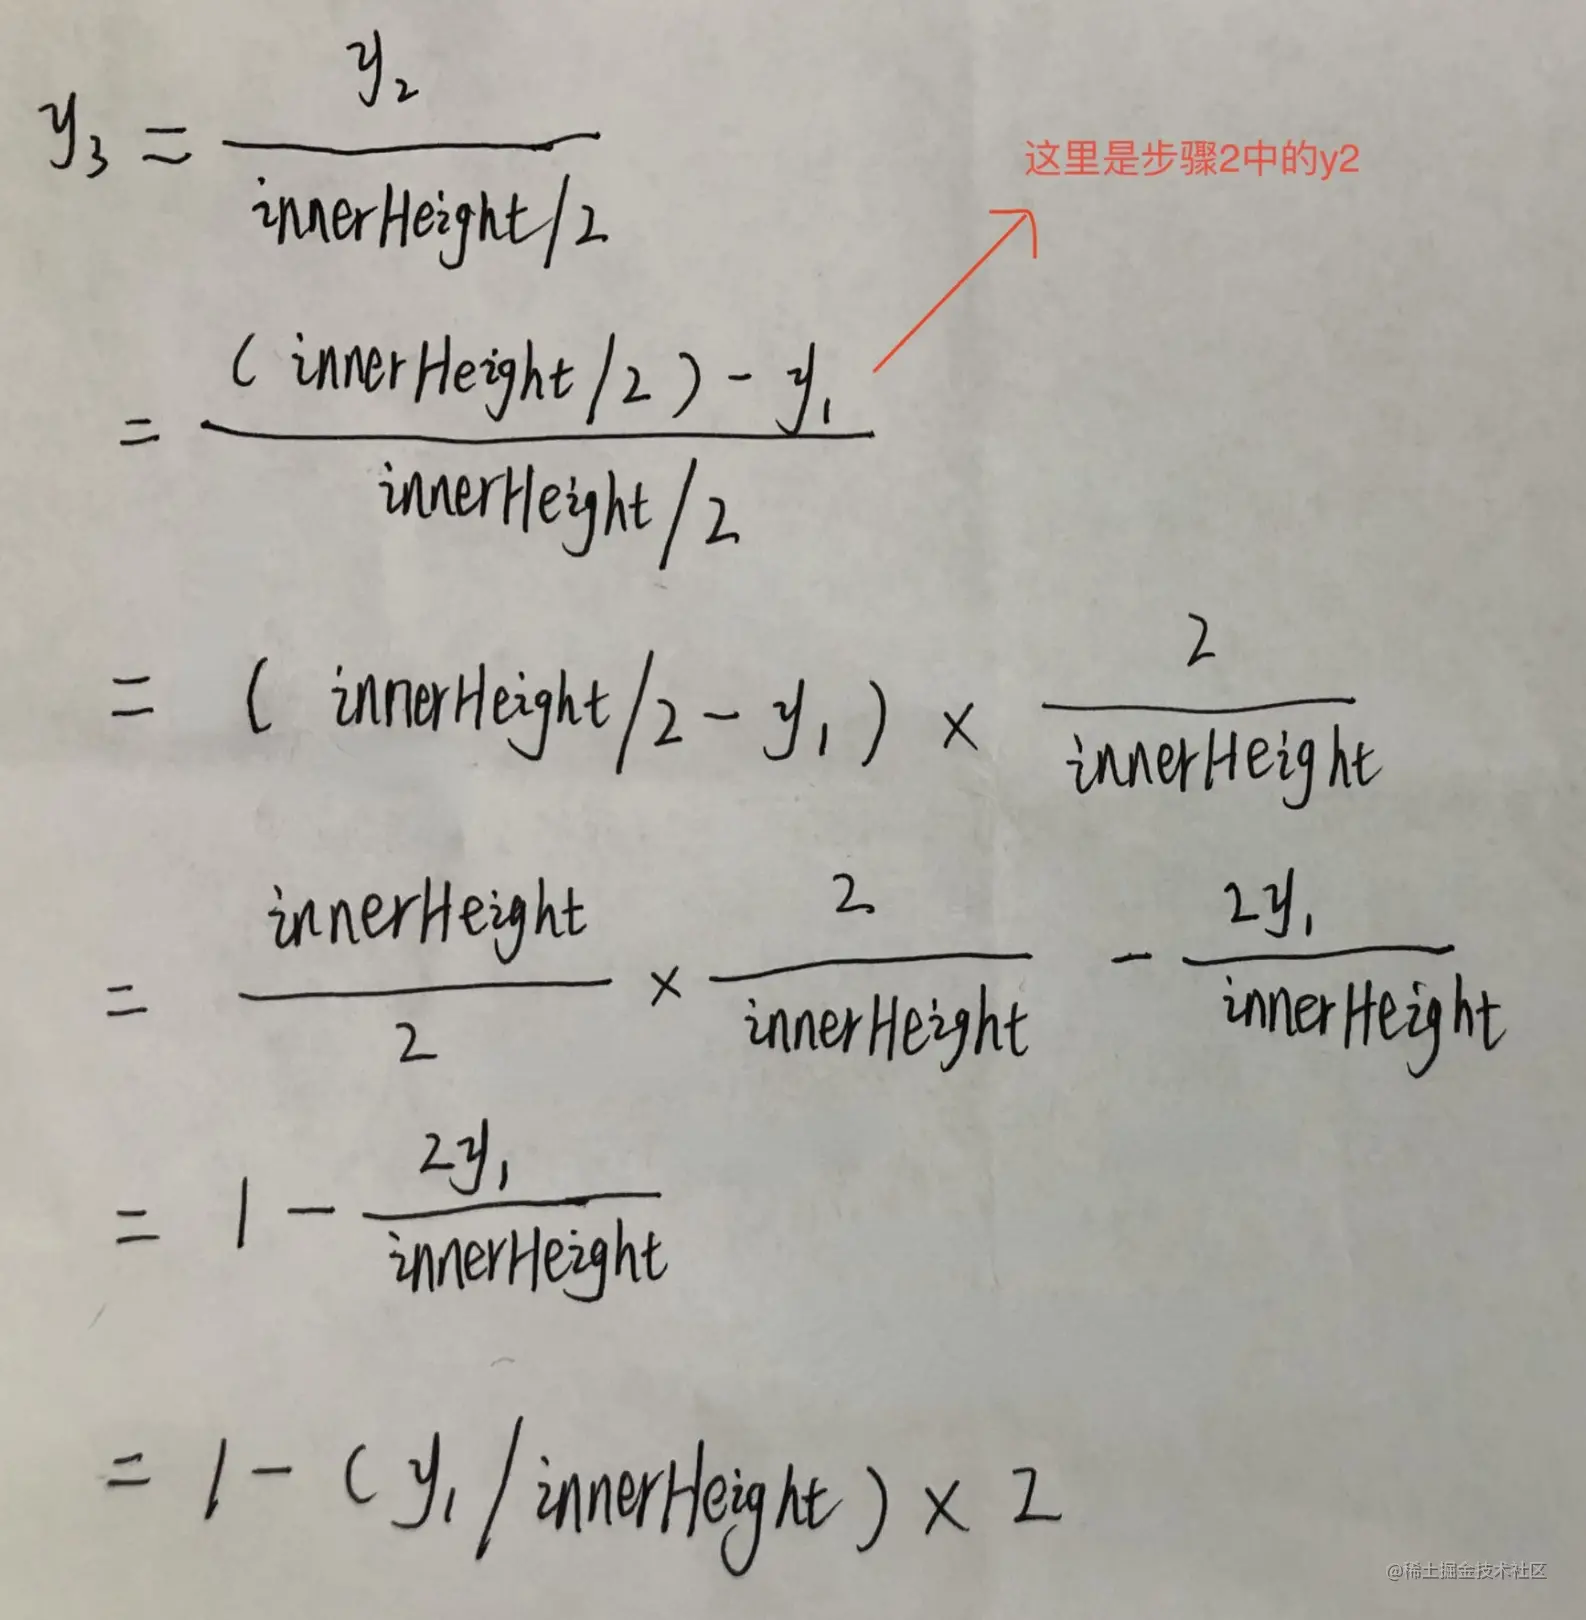 y₃ = y₂ / (innerHeight/2)
这里是步骤2中的y2
= ((innerHeight/2) - y₁) / (innerHeight/2)
= (innerHeight/2 - y₁) × 2/innerHeight
= innerHeight/2 × 2/innerHeight - 2y₁/innerHeight
= 1 - 2y₁/innerHeight
= 1 - (y₁/innerHeight) × 2
@稀土掘金技术社区